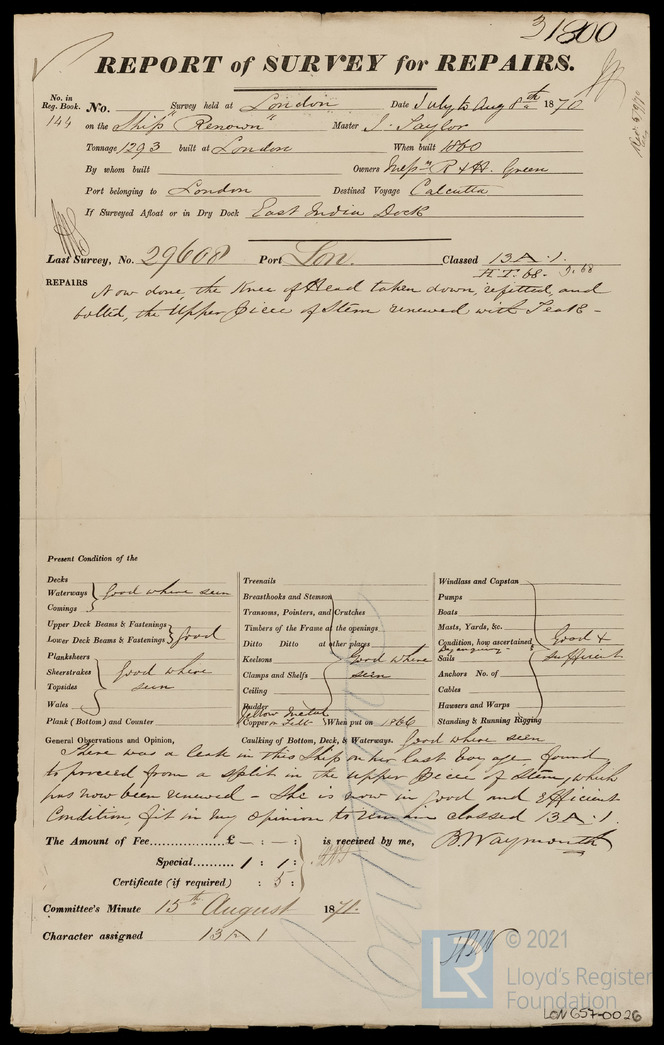 31800
REPORT of SURVEY for REPAIRS.
No. in Reg. Book. No. Survey held at London Date July to Aug 8th 1870
144 on the Ship "Renown" Master J. Taylor
Tonnage 1293 built at London When built 1860
By whom built Owners Messrs R & H. Green
Port belonging to London Destined Voyage Calcutta
If Surveyed Afloat or in Dry Dock East India Dock
Last Survey, No. 29608 Port Lon. Classed 13 A. 1.
H.T. 68 - 5.68
REPAIRS Now done, the Knee of Head taken down, refitted, and
bolted, the Upper Piece of Stem renewed with Teak -
Present Condition of the
Decks
Waterways
Comings
Good where seen
Upper Deck Beams & Fastenings
Lower Deck Beams & Fastenings
Good
Planksheers
Sheerstrakes
Topsides
Wales
Good where
seen
Plank (Bottom) and Counter
Treenails
Breasthooks and Stemson
Transoms, Pointers, and Crutches
Timbers of the Frame at the openings
Ditto Ditto at other places
Keelsons
Clamps and Shelfs
Ceiling
Rudder
Good where
seen
Yellow Metal
Copper on Felt When put on 1866
Windlass and Capstan
Pumps
Boats
Masts, Yards, &c.
Condition, how ascertained
By enquiry
Sails
Anchors No. of
Cables
Hawsers and Warps
Standing & Running Rigging
Good &
sufficient
General Observations and Opinion, Caulking of Bottom, Deck, & Waterways. Good where seen
There was a leak in this Ship on her last Voyage, found
to proceed from a split in the Upper Piece of Stem, which
has now been renewed - She is now in good and efficient
Condition, fit in my opinion to remain classed 13 A. 1.
The Amount of Fee £ - : - : is received by me, B. Waymouth
Special 1 : 1 :
Certificate (if required) : 5 :
Committee's Minute 15th August 1871.
Character assigned 13 A 1
© 2021
LR
Lloyd's Register
Foundation
LON 657-0026